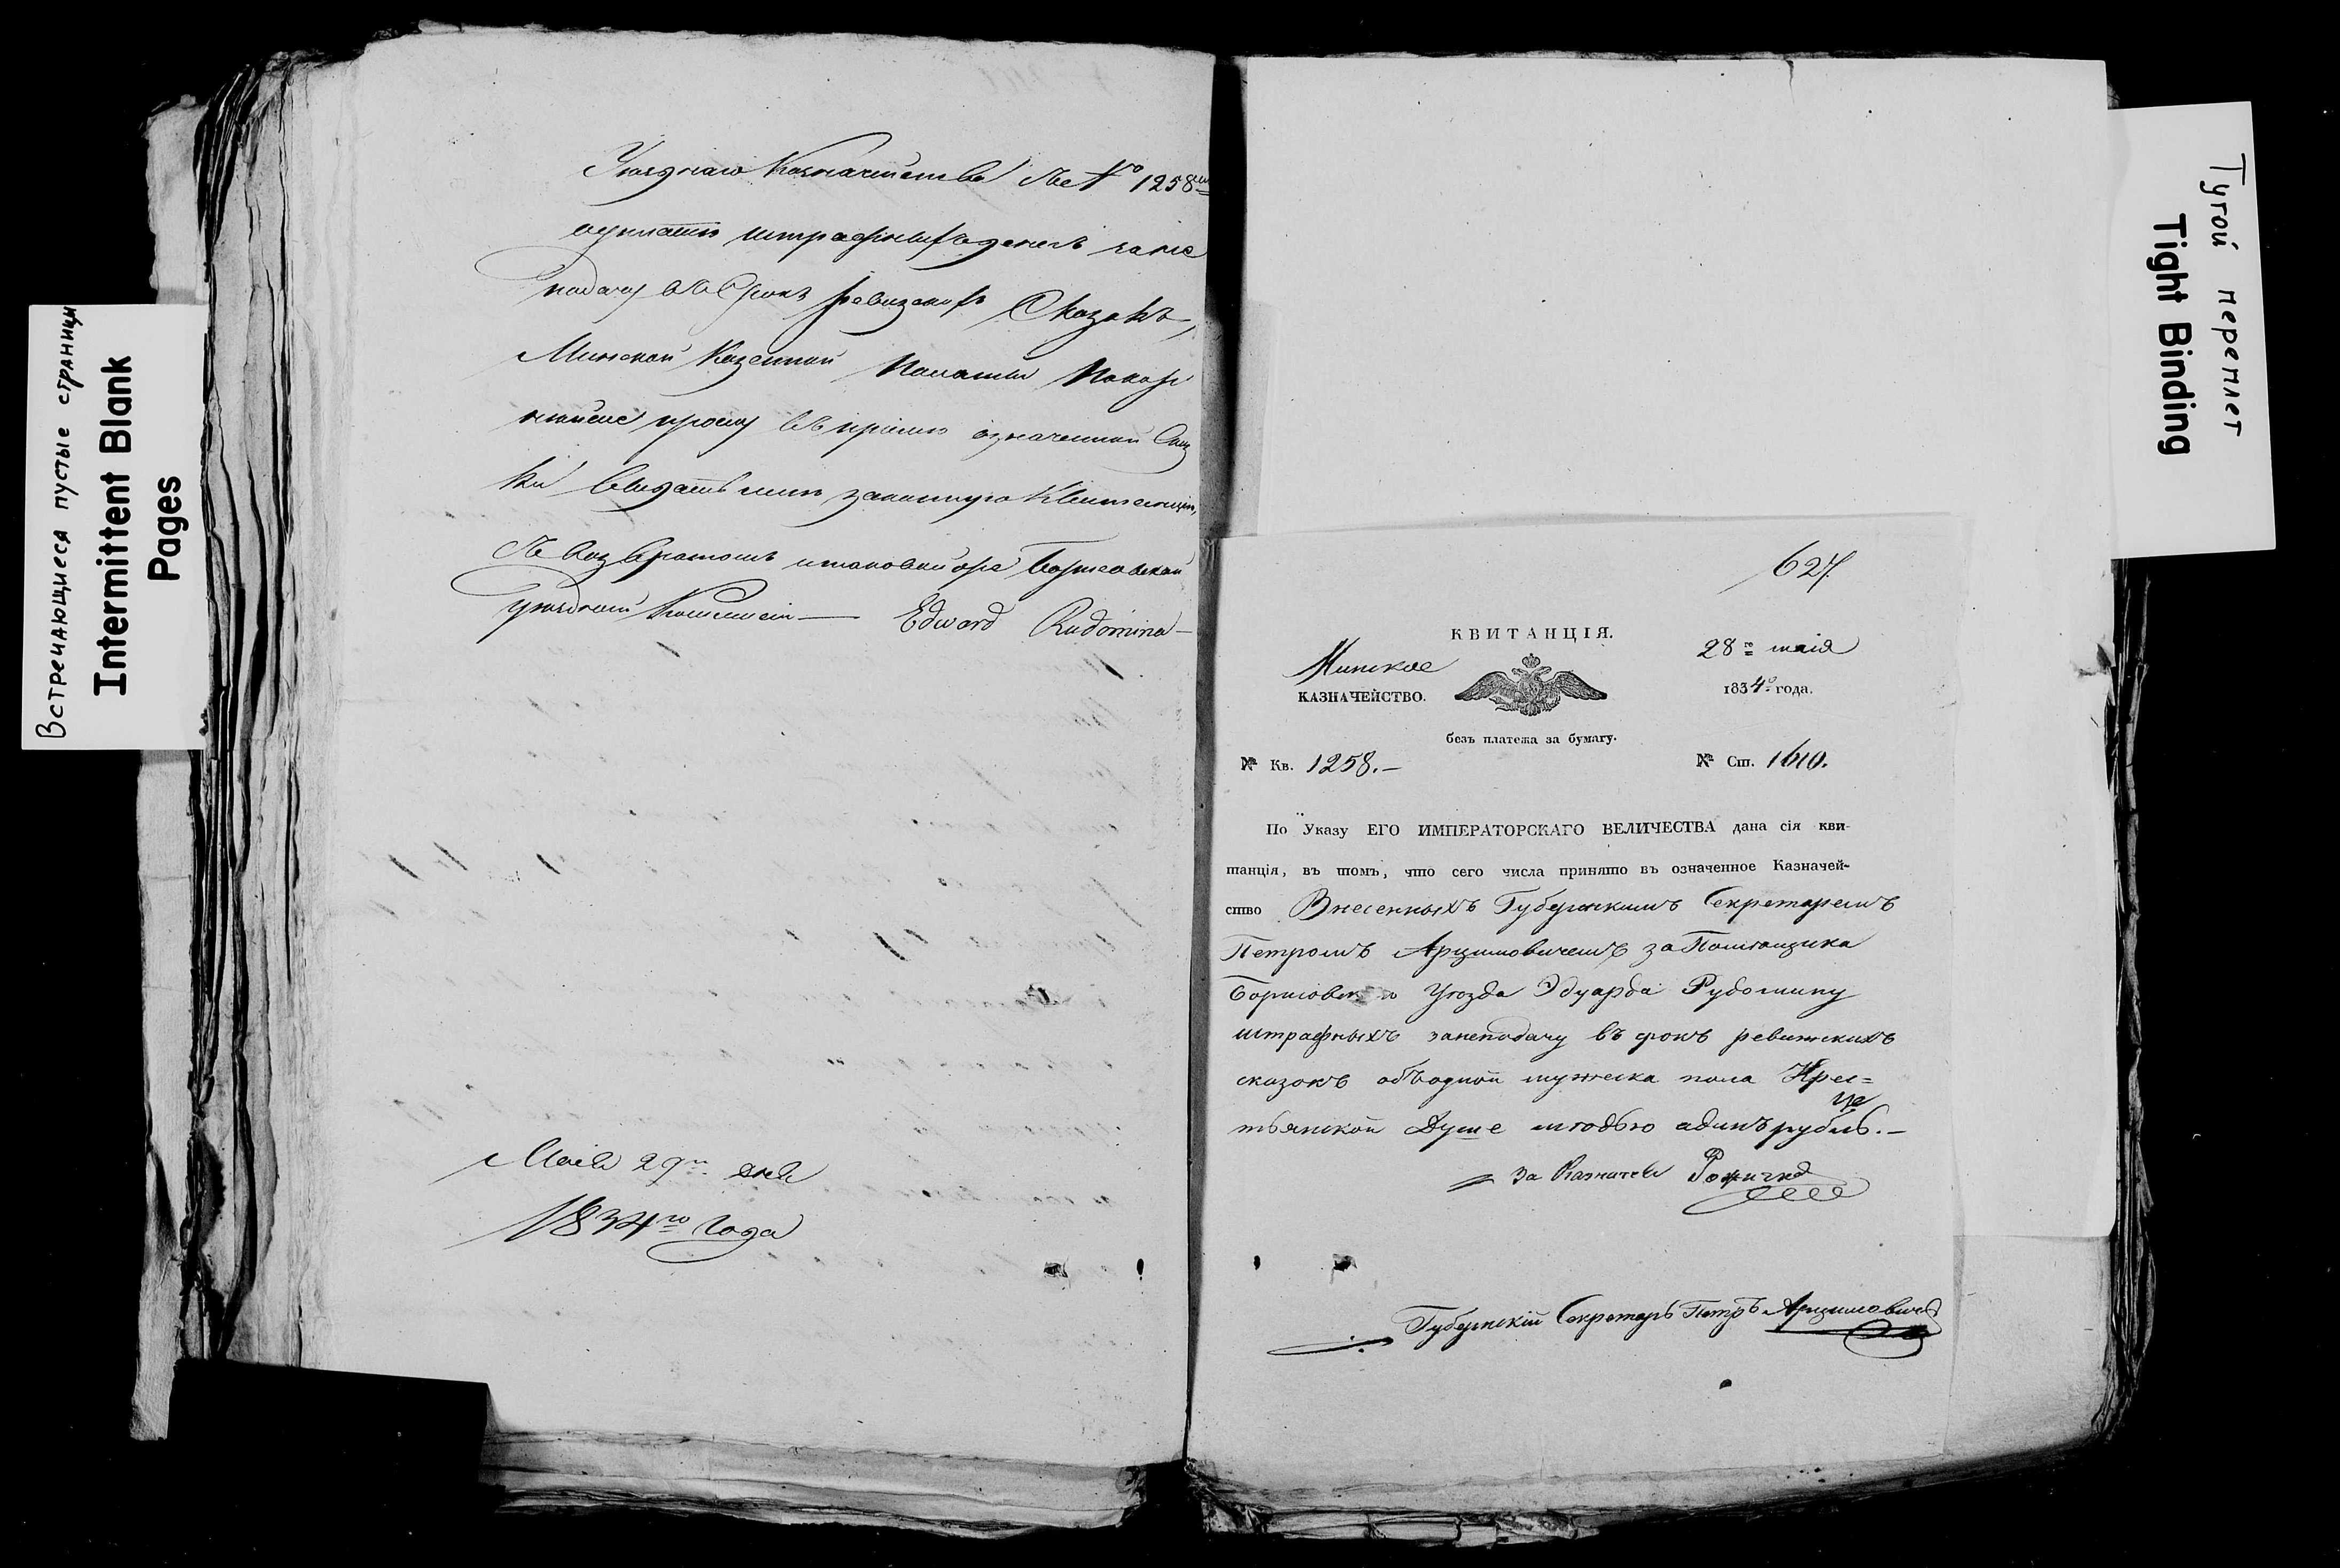 Встречающиеся пустые страницы
Intermittent Blank
Pages
Уѣзднаго Казначейства № 1258
штрафныхъ денегъ за не
подачу въ срокъ ревизскихъ Сказокъ,
Минской Казенной Палаты Покор
нѣйше прошу въ означенной Сказ
ки выдать мнѣ Квитанцію,
съ возвратомъ Борисовской
уѣздной Коммисіи — Edward Rudomina —
Маія 29 дня
1834го года
Тугой переплет
Tight Binding
627.
КВИТАНЦІЯ.
28го маія
Минское
КАЗНАЧЕЙСТВО.
1834го года.
безъ платежа за бумагу.
№ Кв. 1258.—
№ Ст. 1610.
По Указу ЕГО ИМПЕРАТОРСКАГО ВЕЛИЧЕСТВА дана сія кви-
танція, въ томъ, что сего числа принято въ означенное Казначей-
ство Внесенныхъ Губернскимъ Секретаремъ
Петромъ Арцимовичемъ за Помѣщика
Уѣзда Эдуарда Рудомину
штрафныхъ занеподачу въ срокъ ревизскихъ
сказокъ обѣодной мужеска пола Крес=
тьянской Душе мѣдью одинъ рубль.—
За Казначея
Губернскій Секретарь Петръ Арцимовичъ